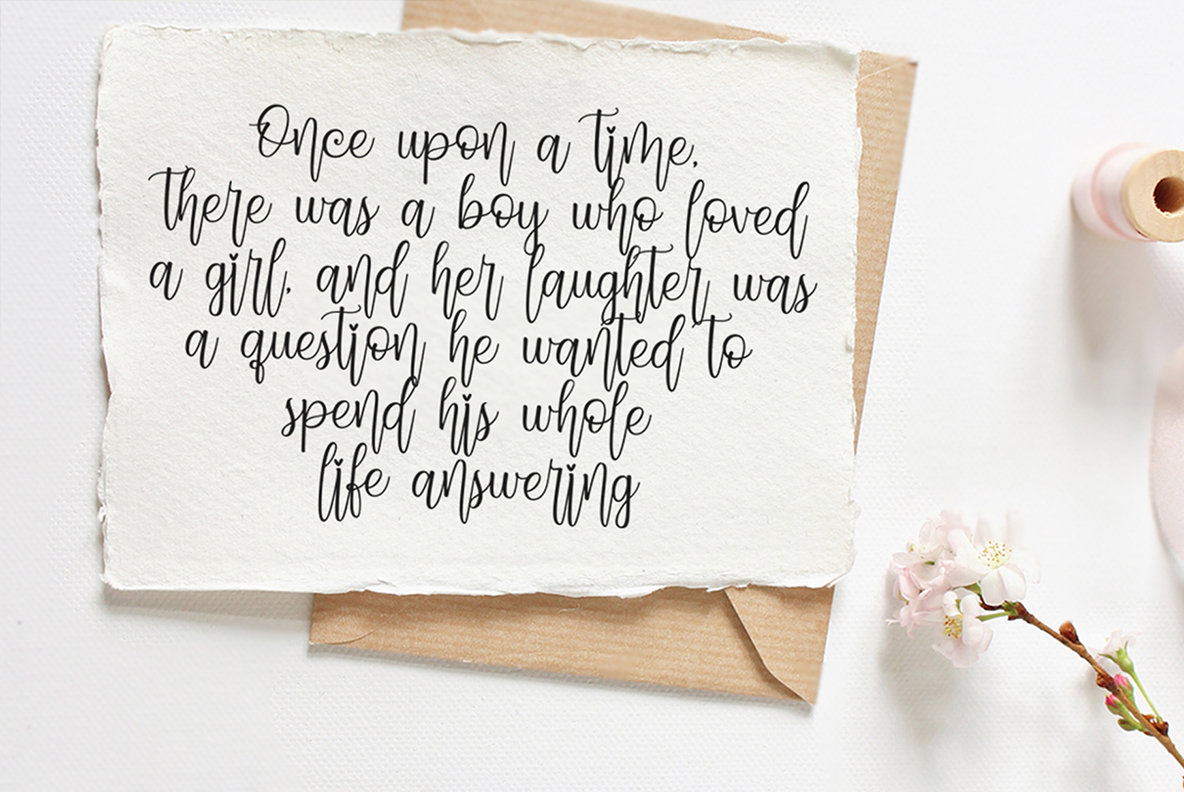 Once upon a time,
there was a boy who loved
a girl, and her laughter was
a question he wanted to
spend his whole
life answering